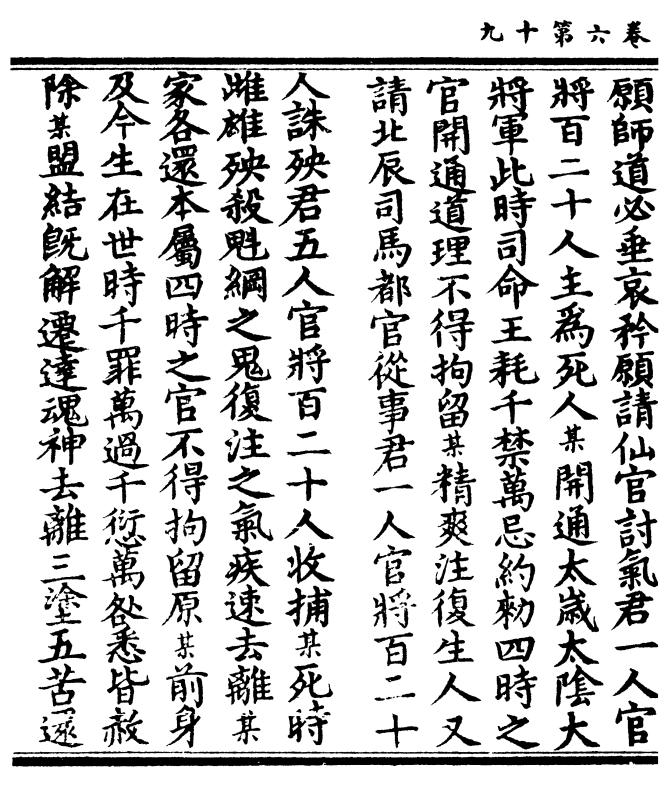 卷六第十九
願師道必垂哀矜願請仙官討氣君一人官
將百二十人主爲死人某開通太歲太陰大
將軍此時司命王耗千禁萬忌約勑四時之
官開通道理不得拘留某精爽注復生人又
請北辰司馬都官從事君一人官將百二十
人誅殃君五人官將百二十人收捕某死時
雌雄殃殺魁綱之鬼復注之氣疾速去離某
家各還本屬四時之官不得拘留原某前身
及今生在世時千罪萬過千愆萬咎悉皆赦
除某盟結旣解遷達魂神去離三塗五苦還